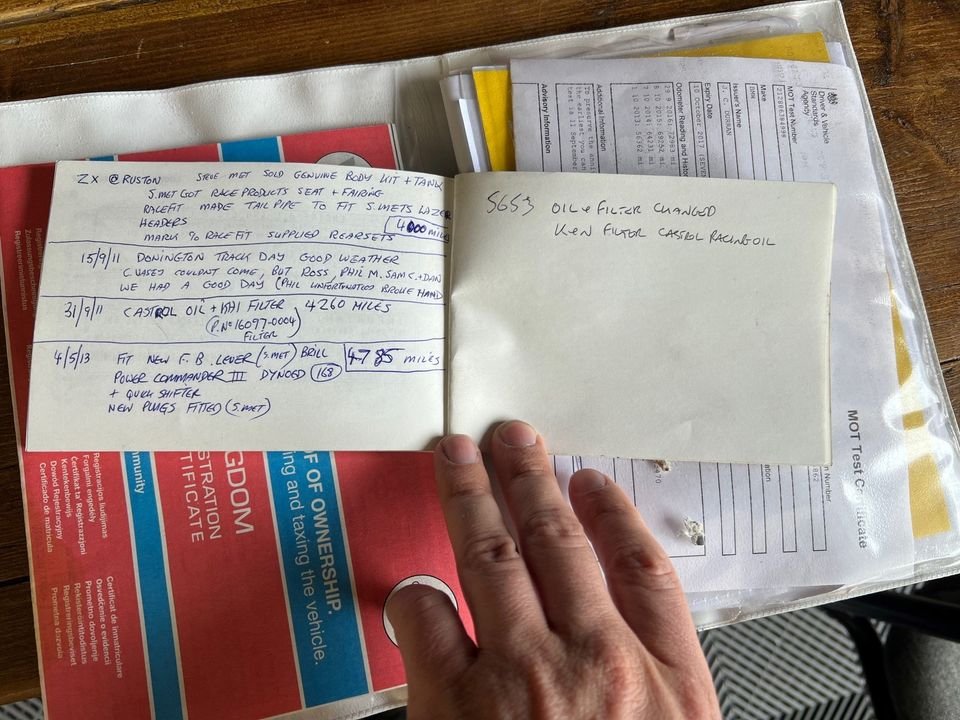 ZX @ RUSTON STEVE MET SOLD GENUINE BODY KIT + TANK
S.MET GOT RACE PRODUCTS SEAT + FAIRING
RACEFIT MADE TAIL PIPE TO FIT S.METS LAZER
HEADERS
4000 MILES
MARK % RACEFIT SUPPLIED REARSETS
15/9/11 DONINGTON TRACK DAY GOOD WEATHER
COULDNT COME, BUT ROSS, PHIL M. SAM C. + DAN
WE HAD A GOOD DAY (PHIL UNFORTUNATLEY BROKE HAND
31/9/11 CASTROL OIL + KHI FILTER 4260 MILES
(P.No 16097-0004)
FILTER
4/5/13 FIT NEW F.B. LEVER (S.MET) BRILL 4785 MILES
POWER COMMANDER III DYNOED 168
+ QUICK SHIFTER
NEW PLUGS FITTED (S.MET)
5653 OIL & FILTER CHANGED
K&N FILTER CASTROL RACING OIL
Driver & Vehicle
Standards
Agency
MOT Test Number
212886304998
Make
BMW
Issuer's Name
J. C. DURRAN
Expiry Date
10 October 2017
Odometer Reading and History
29 9 2016: 72963 mi
8 10 2015: 69952 mi
7 10 2014: 64231 mi
1 10 2013: 56362 mi
Additional Information
To preserve the anni
the earliest you can
test is 11 September
Advisory Information
MOT Test Certificate
OF OF OWNERSHIP.
ing and taxing the vehicle.
GDOM
STRATION
TIFICATE
mmunity
Registracijos liudijimas
Forgalmi engedély
Ċertifikat ta' Reġistrazzjoni
Kentekenbewijs
Dowód Rejestracyjny
Certificado de matrícula
Certificat de înmatriculare
Osvedčenie o evidencii
Prometno dovoljenje
Rekisteröintitodistus
Registreringsbeviset
Prometna dozvola